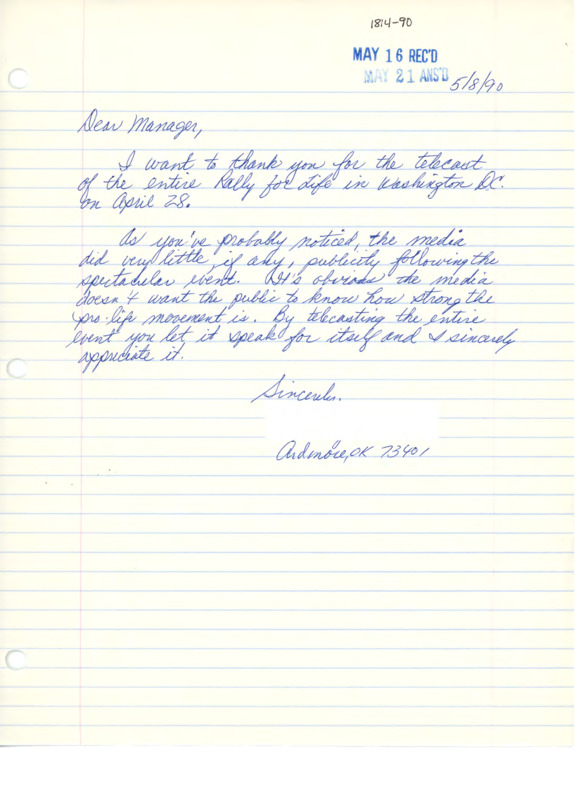 1814-90
MAY 16 REC'D
MAY 21 ANS'D
5/8/90
Dear Manager,
I want to thank you for the telecast
of the entire Rally for Life in Washington DC.
on April 28.
As you've probably noticed, the media
did very little, if any, publicity following the
spectacular event. It's obvious the media
doesn't want the public to know how strong the
pro-life movement is. By telecasting the entire
event you let it speak for itself and I sincerely
appreciate it.
Sincerely.
Ardmore, OK 73401